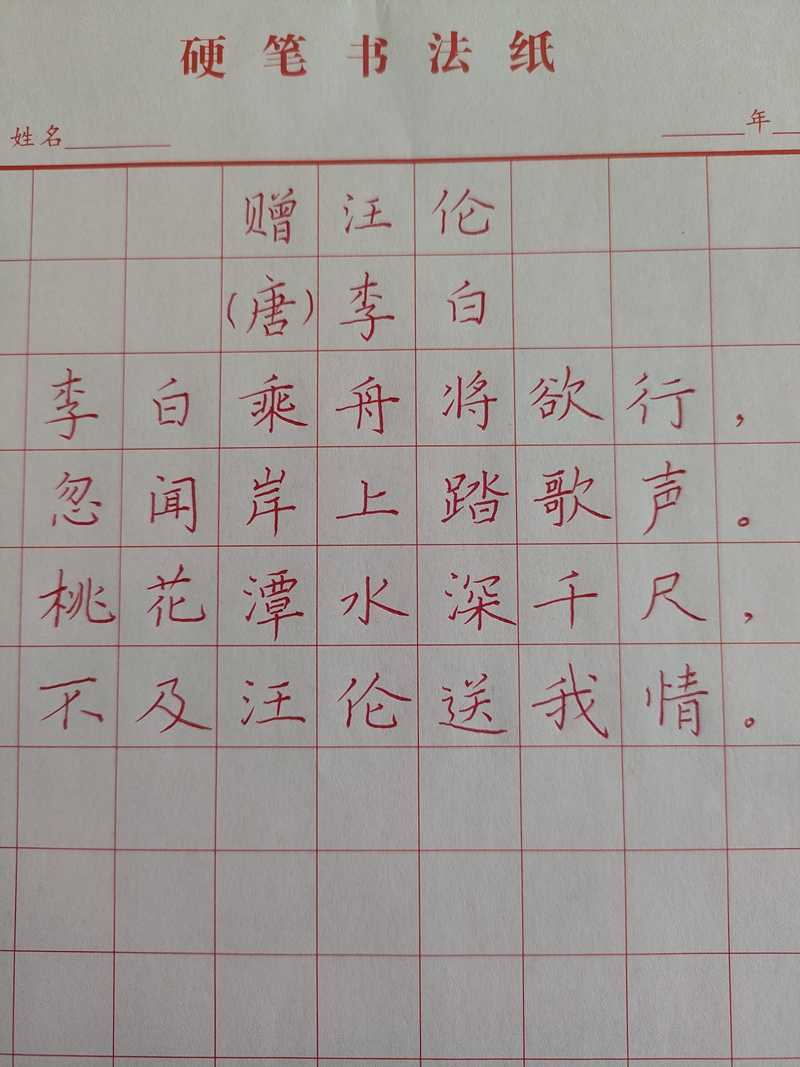 硬笔书法纸
姓名 年
赠汪伦
(唐)李白
李白乘舟将欲行,
忽闻岸上踏歌声。
桃花潭水深千尺,
不及汪伦送我情。